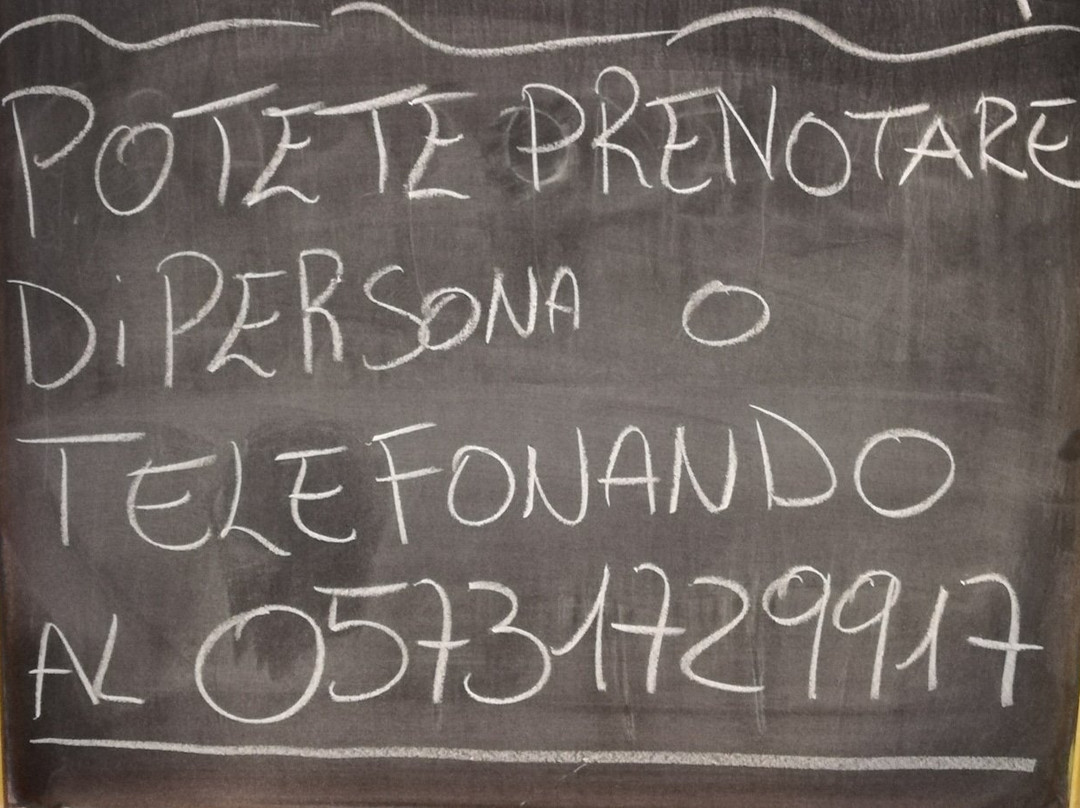 POTETE PRENOTARE
Di PERSONA O
TELEFONANDO
AL 05731729917